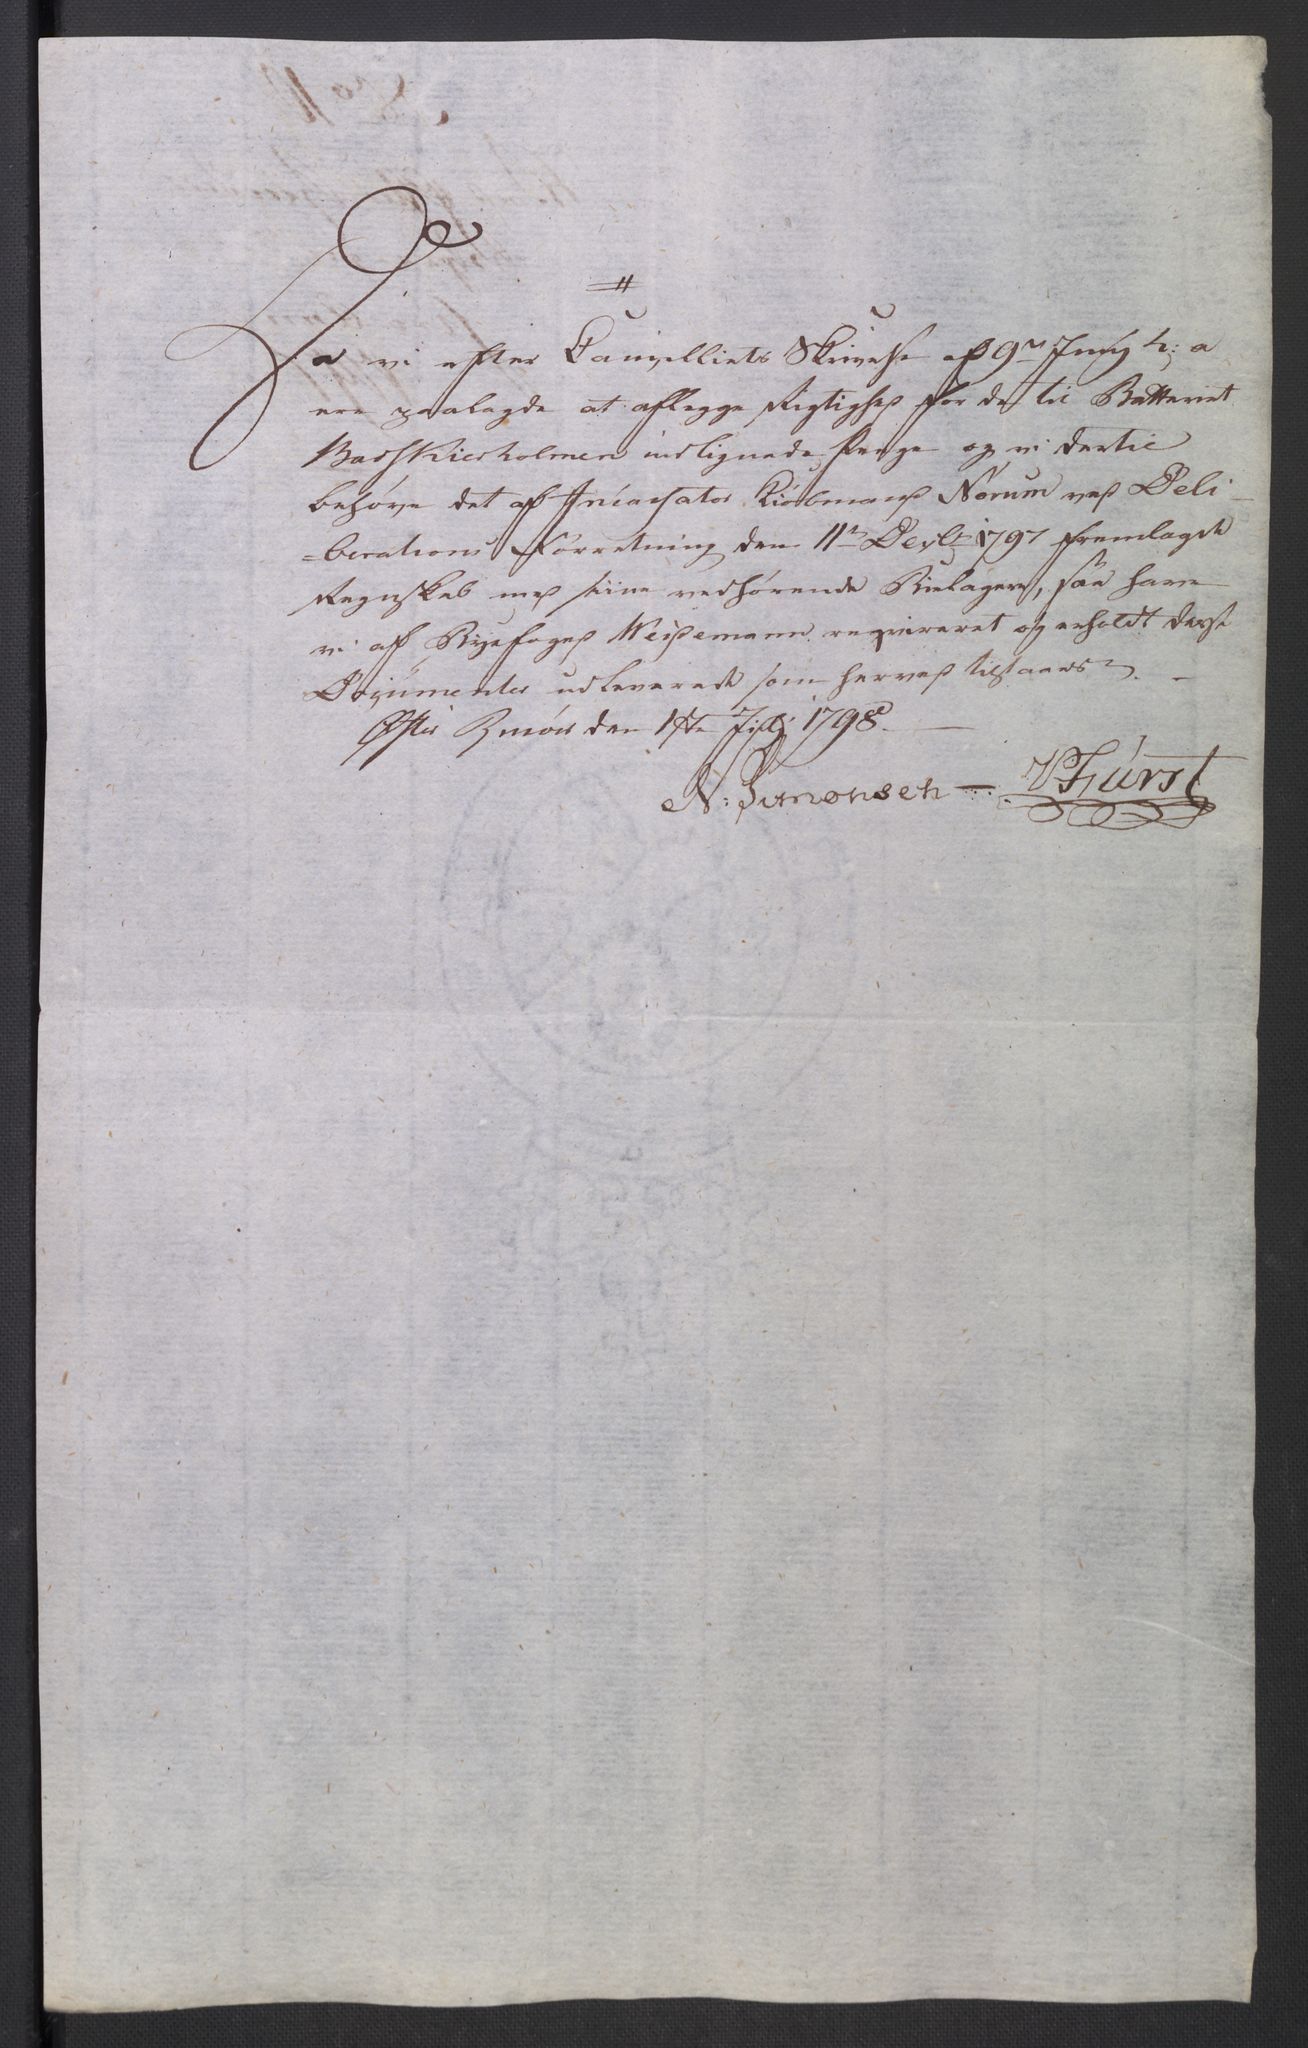 Da vi efter Cancelliets Skrivelse af 9de Juny h: a
ere paalagde at aflegge Rigtighed for de til Batteriet
Baadskiersholmen indlignede Penge og vi dertil
behøve det af Incassator Kiøbmand Nørum ved Deli-
-berations Forretning den 11te Decbr 1797 fremlagde
Regnskab med siine vedhørende Bielager, saa have
vi af Byefoged Weisemann reqvireret og erholdt desse
Documenter udleverede som herved tilstaaes
Øster Riisøer den 1ste July 1798.
N: Simonsen — V Fürst